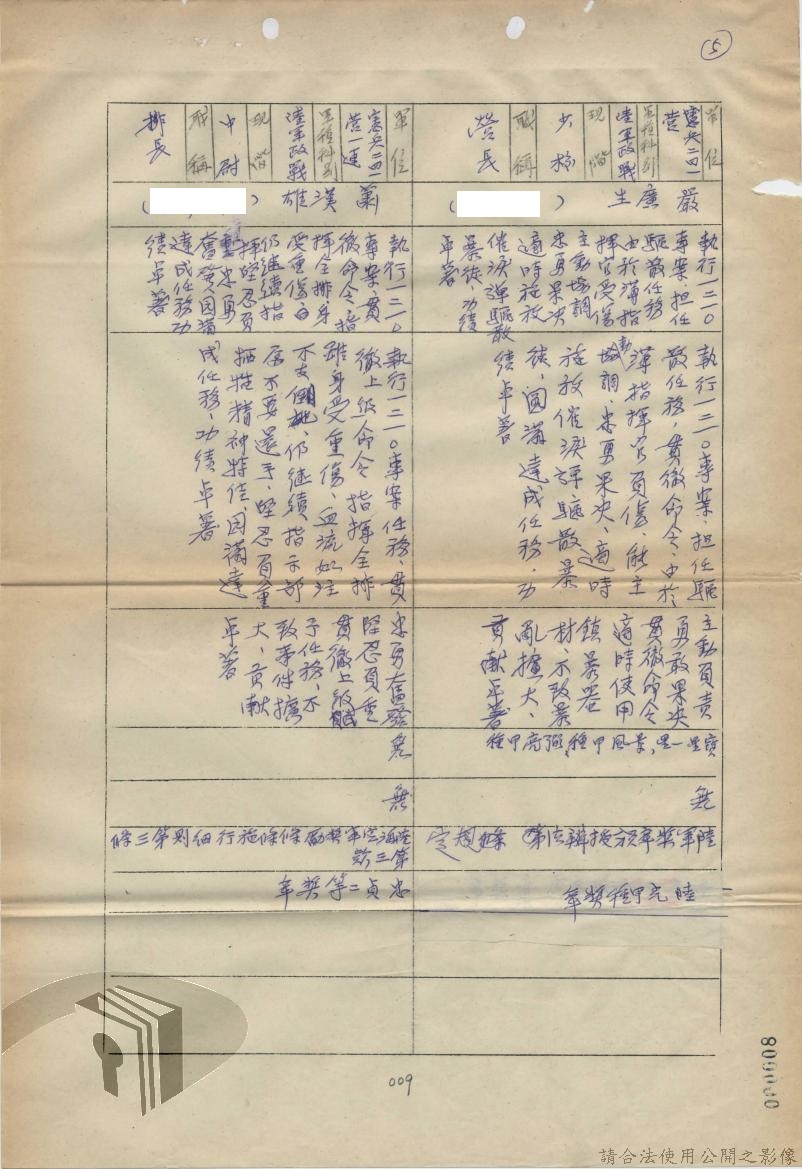 ⑤
單位
憲兵二四一營
軍種科別
陸軍政戰
現階
少校
職稱
營長
嚴廉生（ ）
執行一二一〇
專案，担任
驅散任務
由於薄指
揮官受傷
主動協調
忠勇果決
適時施放
催淚彈驅散
暴徒，功績
卓著
執行一二一〇專案，担任驅
散任務，貫徹命令，由於
薄指揮官負傷，能主
動協調，忠勇果決、適時
施放催淚彈驅散暴
徒，圓滿達成任務，功
績卓著
主動負責
勇敢果決
貫徹命令
適時使用
鎮暴器
材，不致暴
亂擴大，
貢献卓著
無
陸軍獎章頒授辦法第 條規定
陸光甲種獎章
單位
憲兵二四一營一連
軍種科別
陸軍政戰
現階
中尉
職稱
排長
蕭漢雄（ ）
執行一二一〇
專案，貫
徹命令，指
揮全排身
受重傷
仍継續指
揮堅忍負
重忠勇
奮發，因滿
達成任務功
績卓著
執行一二一〇專案任務，貫
徹上級命令，指揮全排
雖身受重傷，血流如注
不支倒地，仍継續指示部
屬不要還手，堅忍負重
犧牲精神特佳，因滿達
成任務，功績卓著
忠勇奮發
堅忍負重
貫徹上級賦
予任務，不
致事件擴
大，貢献
卓著
無
無
陸海空軍獎勵條例施行細則第三條
第三款
忠貞二等獎章
009
000008
請合法使用公開之影像